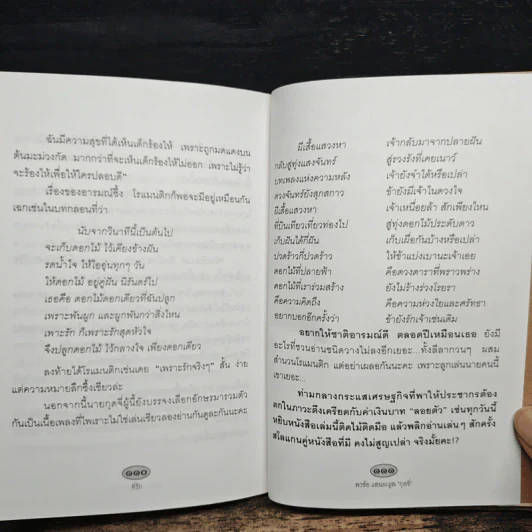 ฉันมีความสุขที่ได้เห็นเด็กร้องไห้ เพราะถูกมดแดงบน
ต้นมะม่วงกัด มากกว่าที่จะเห็นเด็กร้องไห้ไม่ออก เพราะไม่รู้ว่า
จะร้องไห้เพื่อให้ใครปลอบดี"
เรื่องของอารมณ์ซึ้ง โรแมนติกก็พอจะมีอยู่เหมือนกัน
เฉกเช่นในบทกลอนที่ว่า
นับจากวินาทีนี้เป็นต้นไป
จะเก็บดอกไม้ ไว้เคียงข้างฝัน
รดน้ำใจ ให้ไออุ่นทุกๆ วัน
ให้ดอกไม้ อยู่คู่ฝัน นิรันดร์ไป
เธอคือ ดอกไม้ดอกเดียวที่ฉันปลูก
เพราะพันผูก และผูกพันกว่าสิ่งไหน
เพาะรัก ก็เพราะรักสุดหัวใจ
จึงปลูกดอกไม้ ไว้กลางใจ เพียงดอกเดียว
ลงท้ายได้โรแมนติกเช่นเคย "เพราะรักจริงๆ" สั้น ง่าย
แต่ความหมายลึกซึ้งเชียวล่ะ
นอกจากนี้นายกุดจี่ผู้นี้ยังบรรจงเลือกอักษรมารวมตัว
กันเป็นเนื้อเพลงที่ไพเราะไม่ใช่เล่นเชียวลองอ่านกันดูละกันนะคะ
ที่รัก
ผีเสื้อแสวงหา เจ้ากลับมาจากปลายฝัน
กลับสู่ทุ่งแสงจันทร์ สู่รวงรังที่เคยเนาว์
บทเพลงแห่งความหลัง เจ้ายังจำได้หรือเปล่า
ดวงจันทร์ยังสุกสกาว ข้ายังมีเจ้าในดวงใจ
ผีเสื้อแสวงหา เจ้าเหนื่อยล้า สักเพียงไหน
ที่บินเทียวเที่ยวท่องไป สู่ทุ่งดอกไม้ประดับดาว
เก็บฝันได้กี่ฝัน กับเผื่อกันบ้างหรือเปล่า
ปวดร้าวกี่ปวดร้าว ให้ข้าแบ่งเบานะเจ้าเอย
ดอกไม้ที่ปลายฟ้า คือดวงดาราที่พราวพร่าง
ดอกไม้ที่เราร่วมสร้าง ยังไม่ร้างร่วงโรยรา
คือความคิดถึง คือความห่วงใยและศรัทธา
อยากบอกอีกครั้งว่า ข้ายังรักเจ้าเช่นเดิม
อยากให้ชาติอารมณ์ดี ตลอดปีเหมือนเธอ ยังมี
อะไรที่ชวนอ่านชนิดวางไม่ลงอีกเยอะ...ทั้งลีลากวนๆ ผสม
สำนวนโรแมนติก แต่อย่าเผลอกันนะคะ เพราะลูกเล่นนายคนนี้
เขาเยอะ...
ท่ามกลางกระแสเศรษฐกิจที่พาให้ประชากรต้อง
ตกในภาวะตึงเครียดกับค่าเงินบาท "ลอยตัว" เช่นทุกวันนี้
หยิบหนังสือเล่มนี้ติดไม้ติดมือ แล้วพลิกอ่านเล่นๆ สักครั้ง
สโลแกนคู่หนังสือที่มี คงไม่สูญเปล่า จริงมั้ยคะ!?
พรชัย แสนยะมูล 'กุดจี่'